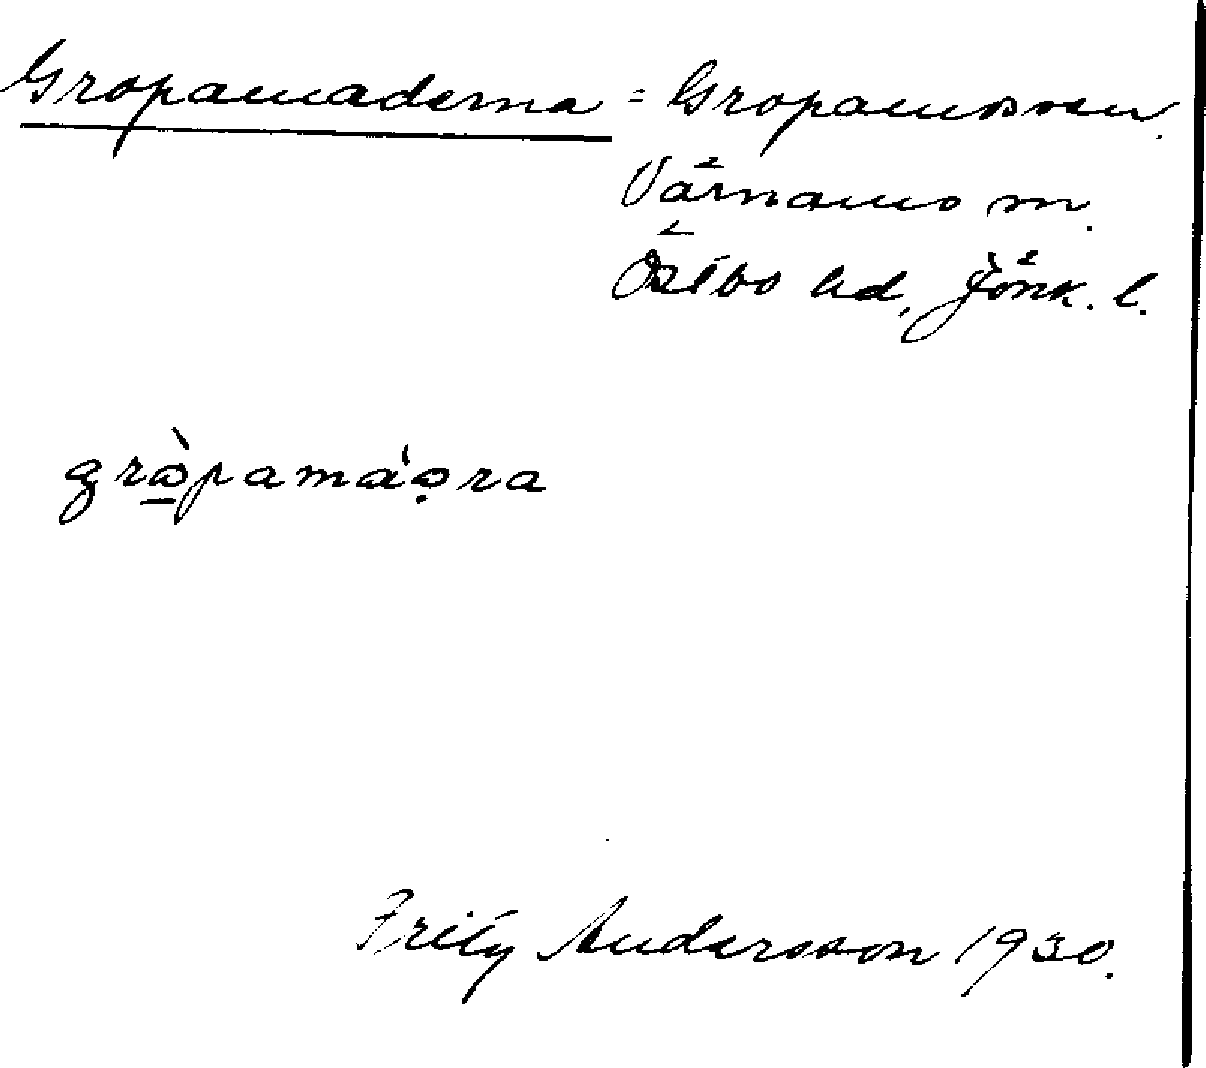 Gropamaderna = Gropamossen.
Värnamo m.
Östbo hd, Jönk. l.
gròpamáǫra
Frity Andersson 1930.